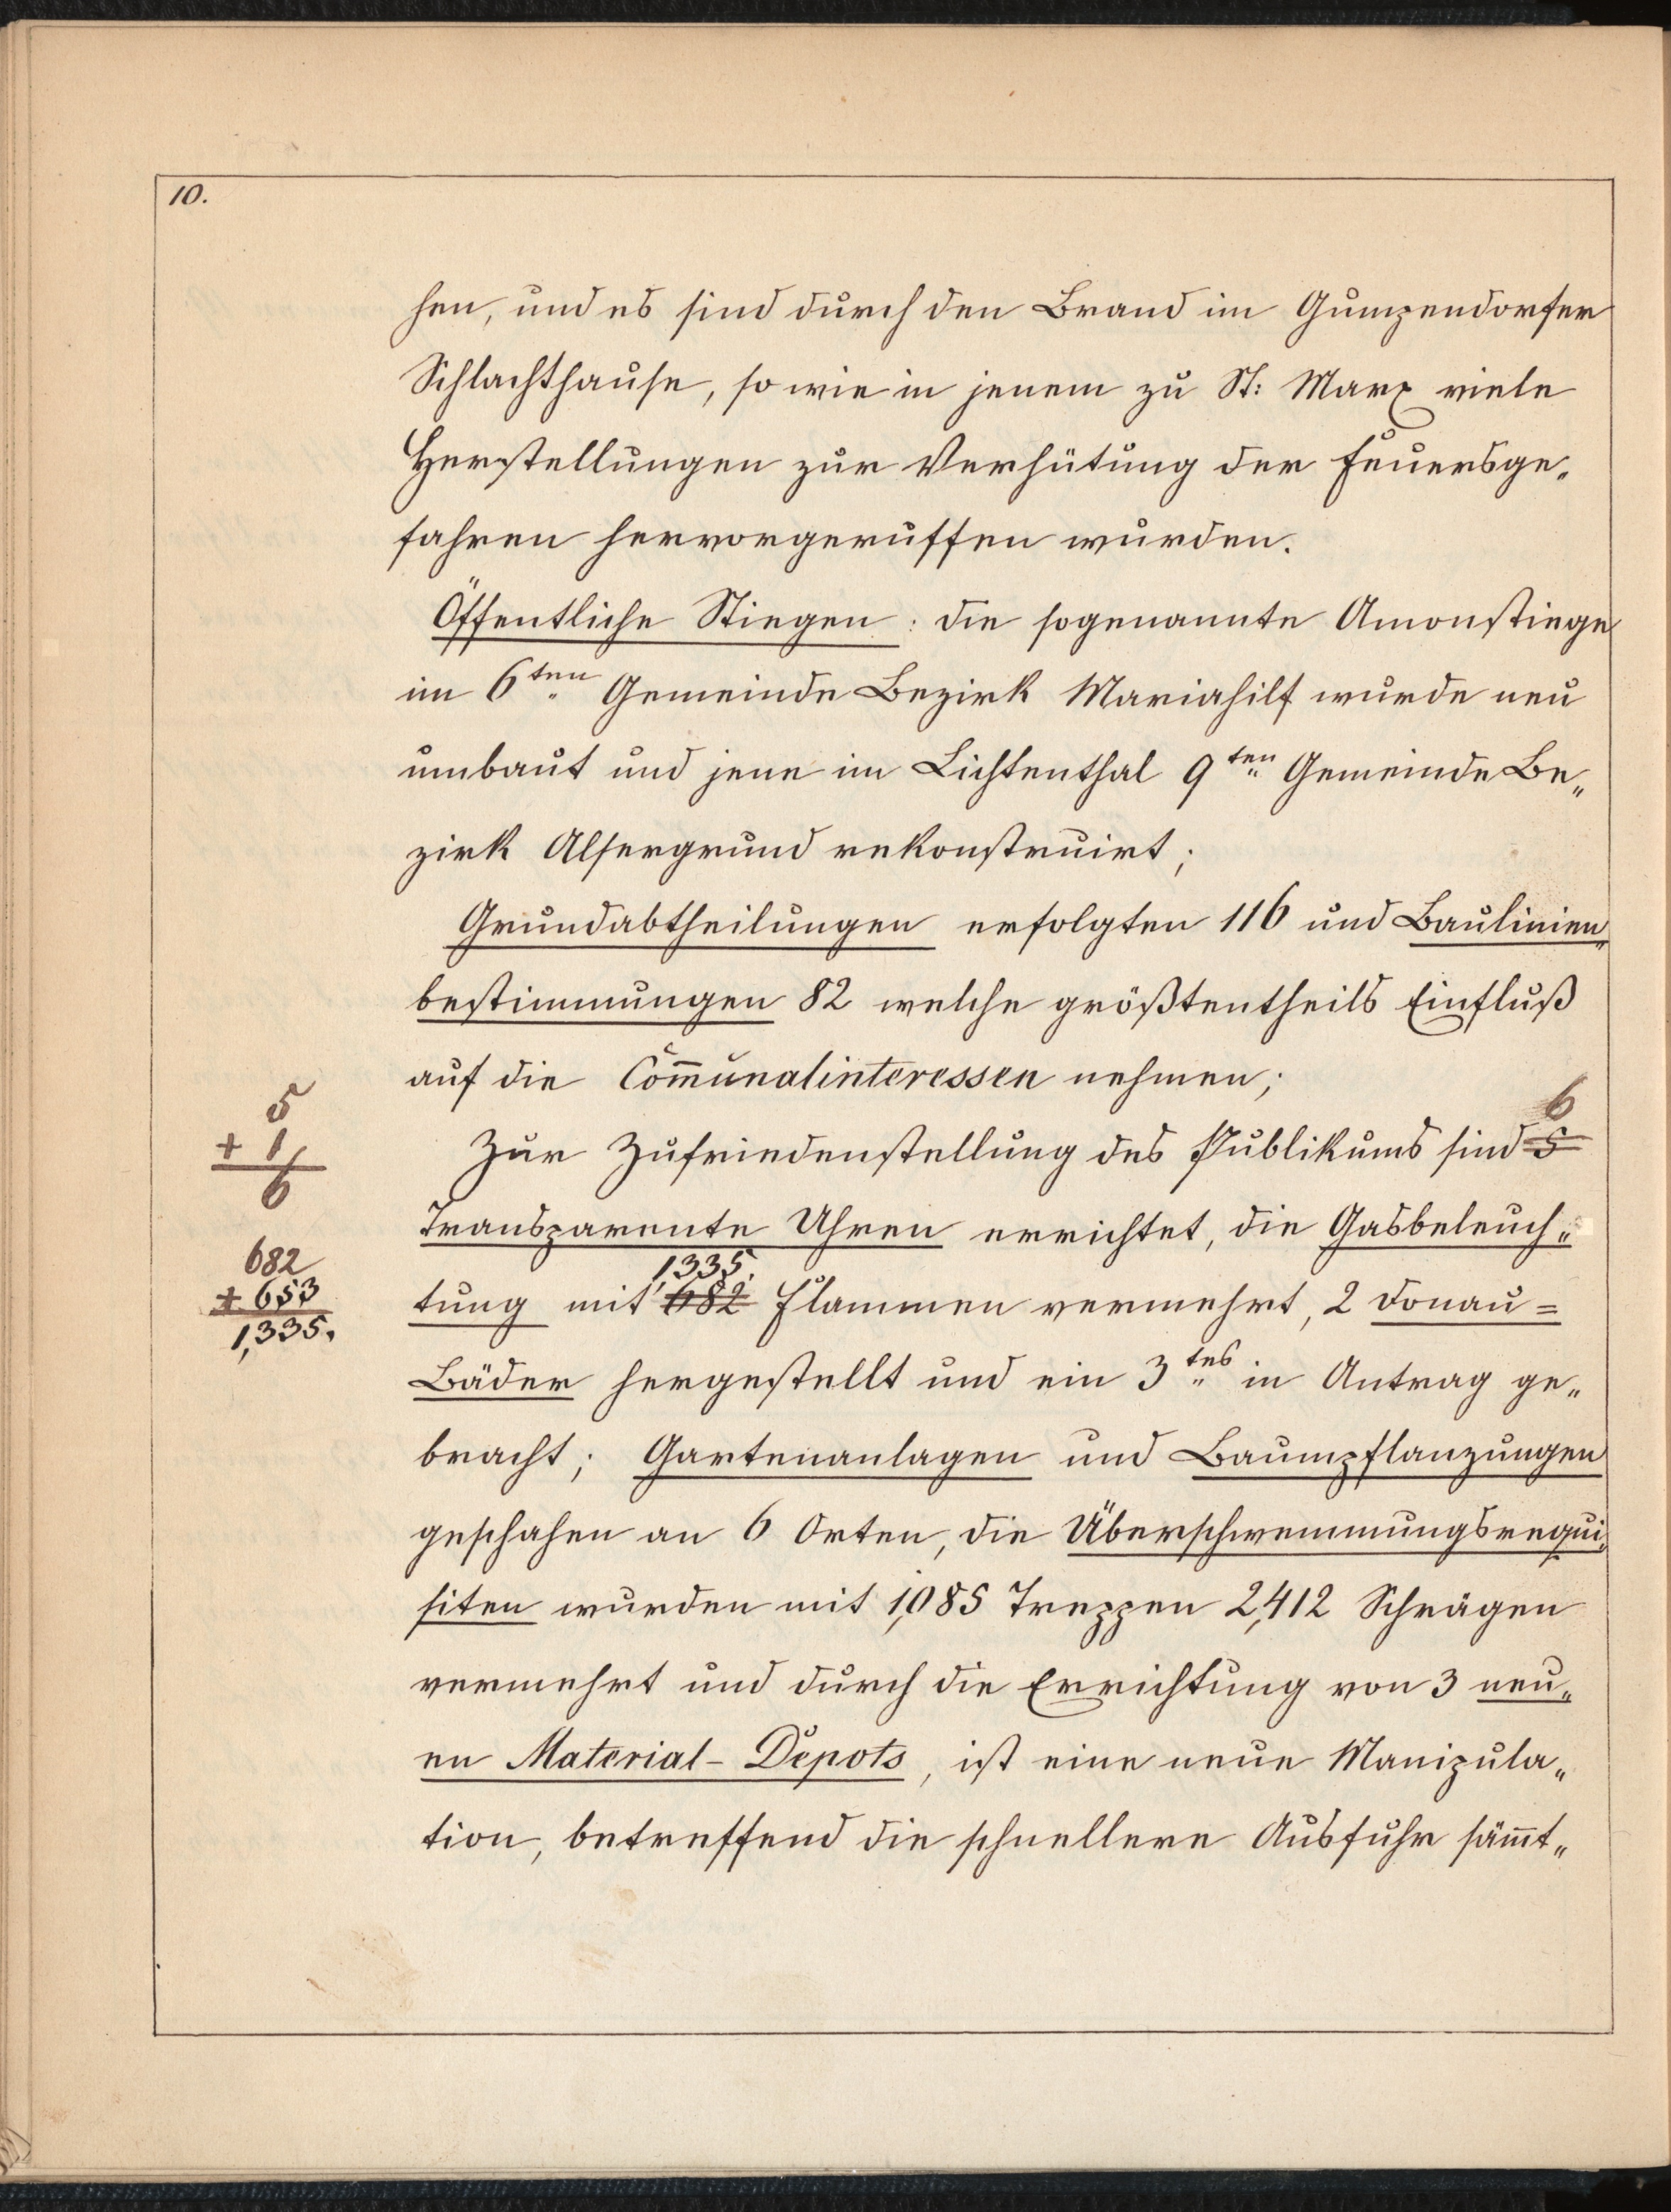 10.
hen, und es sind durch den Brand im Gumpendorfer
Schlachthause, so wie in jenem zu St: Marx viele
Herstellungen zur Verhütung der Feuersge„
fahren hervorgeruffen wurden.
Öffentliche Stiegen: die sogenannte Amonstiege
im 6ten Gemeinde Bezirk Mariahilf wurde neu
umbaut und jene im Lichtenthal 9ten Gemeinde Be„
zirk Alsergrund rekonstruirt;
Grundabtheilungen erfolgten 116 und Baulinien„
bestimmungen 82 welche größtentheils Einfluß
auf die Com̄unalinteressen nehmen;
5
+ 1
6
6
Zur Zufriedenstellung des Publikums sind 5
Transparente Uhren errichtet, die Gasbeleuch„
682
+ 653
1,335.
1,335.
tung mit 682 Flammen vermehrt, 2 Donau=
Bäder hergestellt und ein 3tes in Antrag ge„
bracht; Gartenanlagen und Baumpflanzungen
geschahen an 6 Orten, die Überschwemmungsrequi„
siten wurden mit 1,085 Treppen 2,412 Schrägen
vermehrt und durch die Errichtung von 3 neu„
en Material-Depots, ist eine neue Manipula„
tion, betreffend die schnellere Ausfuhr säm̄t„